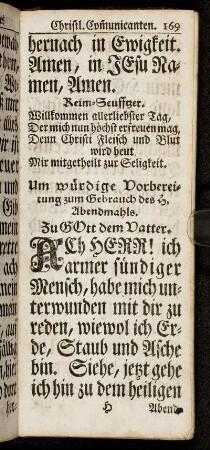 Christl. Com̃unicanten. 169
hernach in Ewigkeit.
Amen, in JEsu Na-
men, Amen.
Reim-Seufftzer.
Willkommen allerliebster Tag,
Der mich nun höchst erfreuen mag,
Denn Christi Fleisch und Blut
wird heut
Mir mitgetheilt zur Seligkeit.
Um würdige Vorberei-
tung zum Gebrauch des H.
Abendmahls.
Zu GOtt dem Vatter.
ACh HERR! ich
armer sündiger
Mensch, habe mich un-
terwunden mit dir zu
reden, wiewol ich Er-
de, Staub und Asche
bin. Siehe, jetzt gehe
ich hin zu dem heiligen
H Abend-